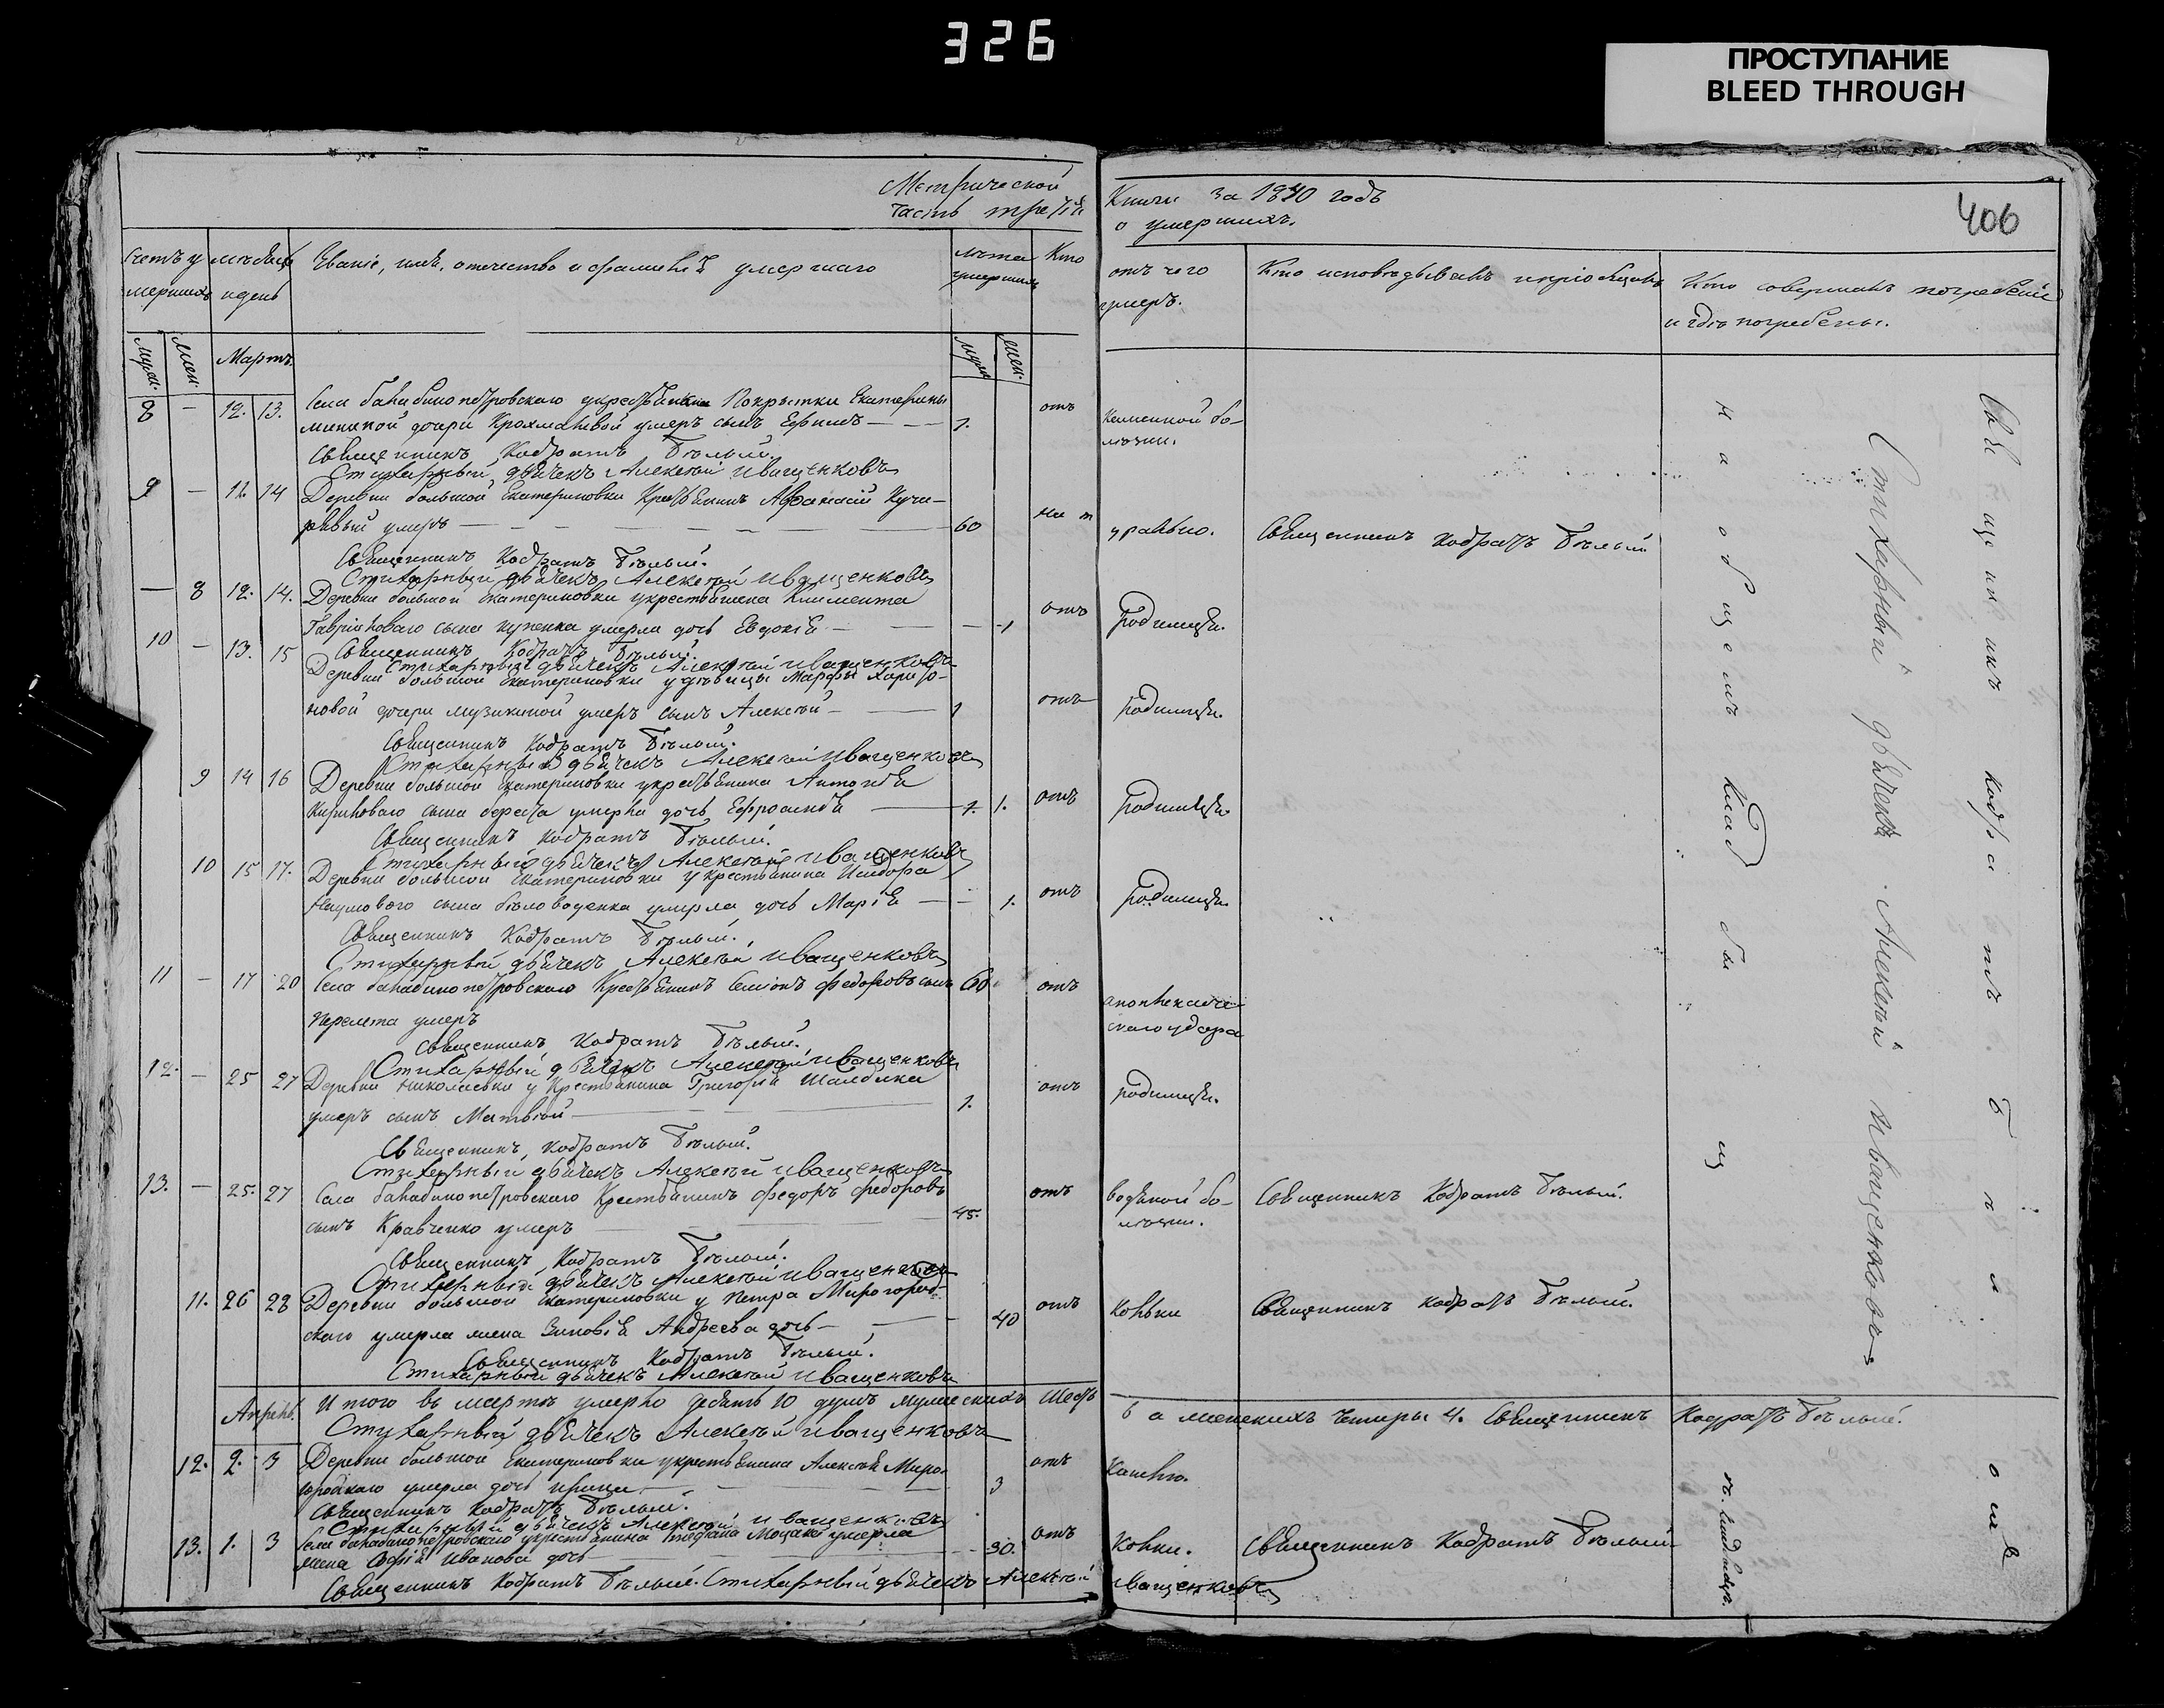 326
ПРОСТУПАНИЕ
BLEED THROUGH
406
Метрической
часть третія
Книги за 1840 годъ
о умершихъ.
Счетъ умершихъ
мѣсяцъ и день
Званіе, имя, отчество и фамилія умершаго
лѣта умершихъ
Кто отъ чего умеръ.
Кто исповѣдывалъ и пріобщалъ
Кто совершалъ погребеніе
и гдѣ погребены.
муж. жен. Мартъ. муж. жен.
8 — 12. 13. Села балабинопетровскаго у крестьянки Покрытки Екатерины
дочери умеръ сынъ Ефимъ — 1. отъ каменной болѣзни.
Священникъ Кодратъ Бѣлый
Стихарный дьячекъ Алексѣй Иващенковъ
9 — 12 14 Деревни большой Екатериновки Крестьянинъ Афанасій Куче-
рявый умеръ — 60 натурально. Священникъ Кодратъ Бѣлый
Священникъ Кодратъ Бѣлый.
Стихарный дьячекъ Алексѣй Иващенковъ
— 8 12. 14. Деревни большой Екатериновки у крестьянина Климента
Гавріилова сына умерла дочь Евдокія — 1 отъ родимца.
Священникъ Кодратъ Бѣлый.
Стихарный дьячекъ Алексѣй Иващенковъ
10 — 13. 15 Деревни большой Екатериновки у вдовицы Марфы Харито-
новой дочери умеръ сынъ Алексѣй — 1 отъ родимца.
Священникъ Кодратъ Бѣлый.
Стихарный дьячекъ Алексѣй Иващенковъ
9 14 16 Деревни большой Екатериновки у крестьянина Антонія
Кирилова сына умерла дочь Ефросинія — 1. отъ родимца.
Священникъ Кодратъ Бѣлый.
Стихарный дьячекъ Алексѣй Иващенковъ
10 15 17. Деревни большой Екатериновки у крестьянина Исидора
Наумового сына умерла дочь Марія — 1. отъ родимца.
Священникъ Кодратъ Бѣлый.
Стихарный дьячекъ Алексѣй Иващенковъ
11 — 17 20 Села балабинопетровскаго Крестьянинъ Симіонъ Федоровъ сынъ 60 отъ апоплексическаго удара
Перепета умеръ
Священникъ Кодратъ Бѣлый.
Стихарный дьячекъ Алексѣй Иващенковъ
12. — 25 27 Деревни Николаевки у Крестьянина Григорія
умеръ сынъ Матвѣй — 1. отъ родимца.
Священникъ Кодратъ Бѣлый.
Стихарный дьячекъ Алексѣй Иващенковъ
13. — 25. 27 Села балабинопетровскаго Крестьянинъ Федоръ Федоровъ
сынъ Кравченко умеръ — 45. отъ водяной болѣзни. Священникъ Кодратъ Бѣлый.
Священникъ Кодратъ Бѣлый.
Стихарный дьячекъ Алексѣй Иващенковъ
11. 26 28 Деревни большой Екатериновки у Петра Миргород-
скаго умерла жена Зиновія Андреева дочь — 40 отъ кольки Священникъ Кодратъ Бѣлый.
Священникъ Кодратъ Бѣлый.
Стихарный дьячекъ Алексѣй Иващенковъ
Итого въ мартѣ умерло 10 душъ мужескихъ шесть 6 а женскихъ четыри 4. Священникъ Кодратъ Бѣлый.
Стихарный дьячекъ Алексѣй Иващенковъ
Апрѣль.
12. 2. 3 Деревни большой Екатериновки у крестьянина Алексѣя Мирго-
родскаго умерла дочь Ирина — 3 отъ кашлю.
Священникъ Кодратъ Бѣлый.
Стихарный дьячекъ Алексѣй Иващенковъ
13. 1. 3 Села балабинопетровскаго у крестьянина умерла
жена Софія Иванова дочь — 30. отъ кольки. Священникъ Кодратъ Бѣлый
Священникъ Кодратъ Бѣлый. Стихарный дьячекъ Алексѣй Иващенковъ
на общемъ кладбищѣ
Стихарный дьячекъ Алексѣй Иващенковъ
Священникъ Кодратъ Бѣлый